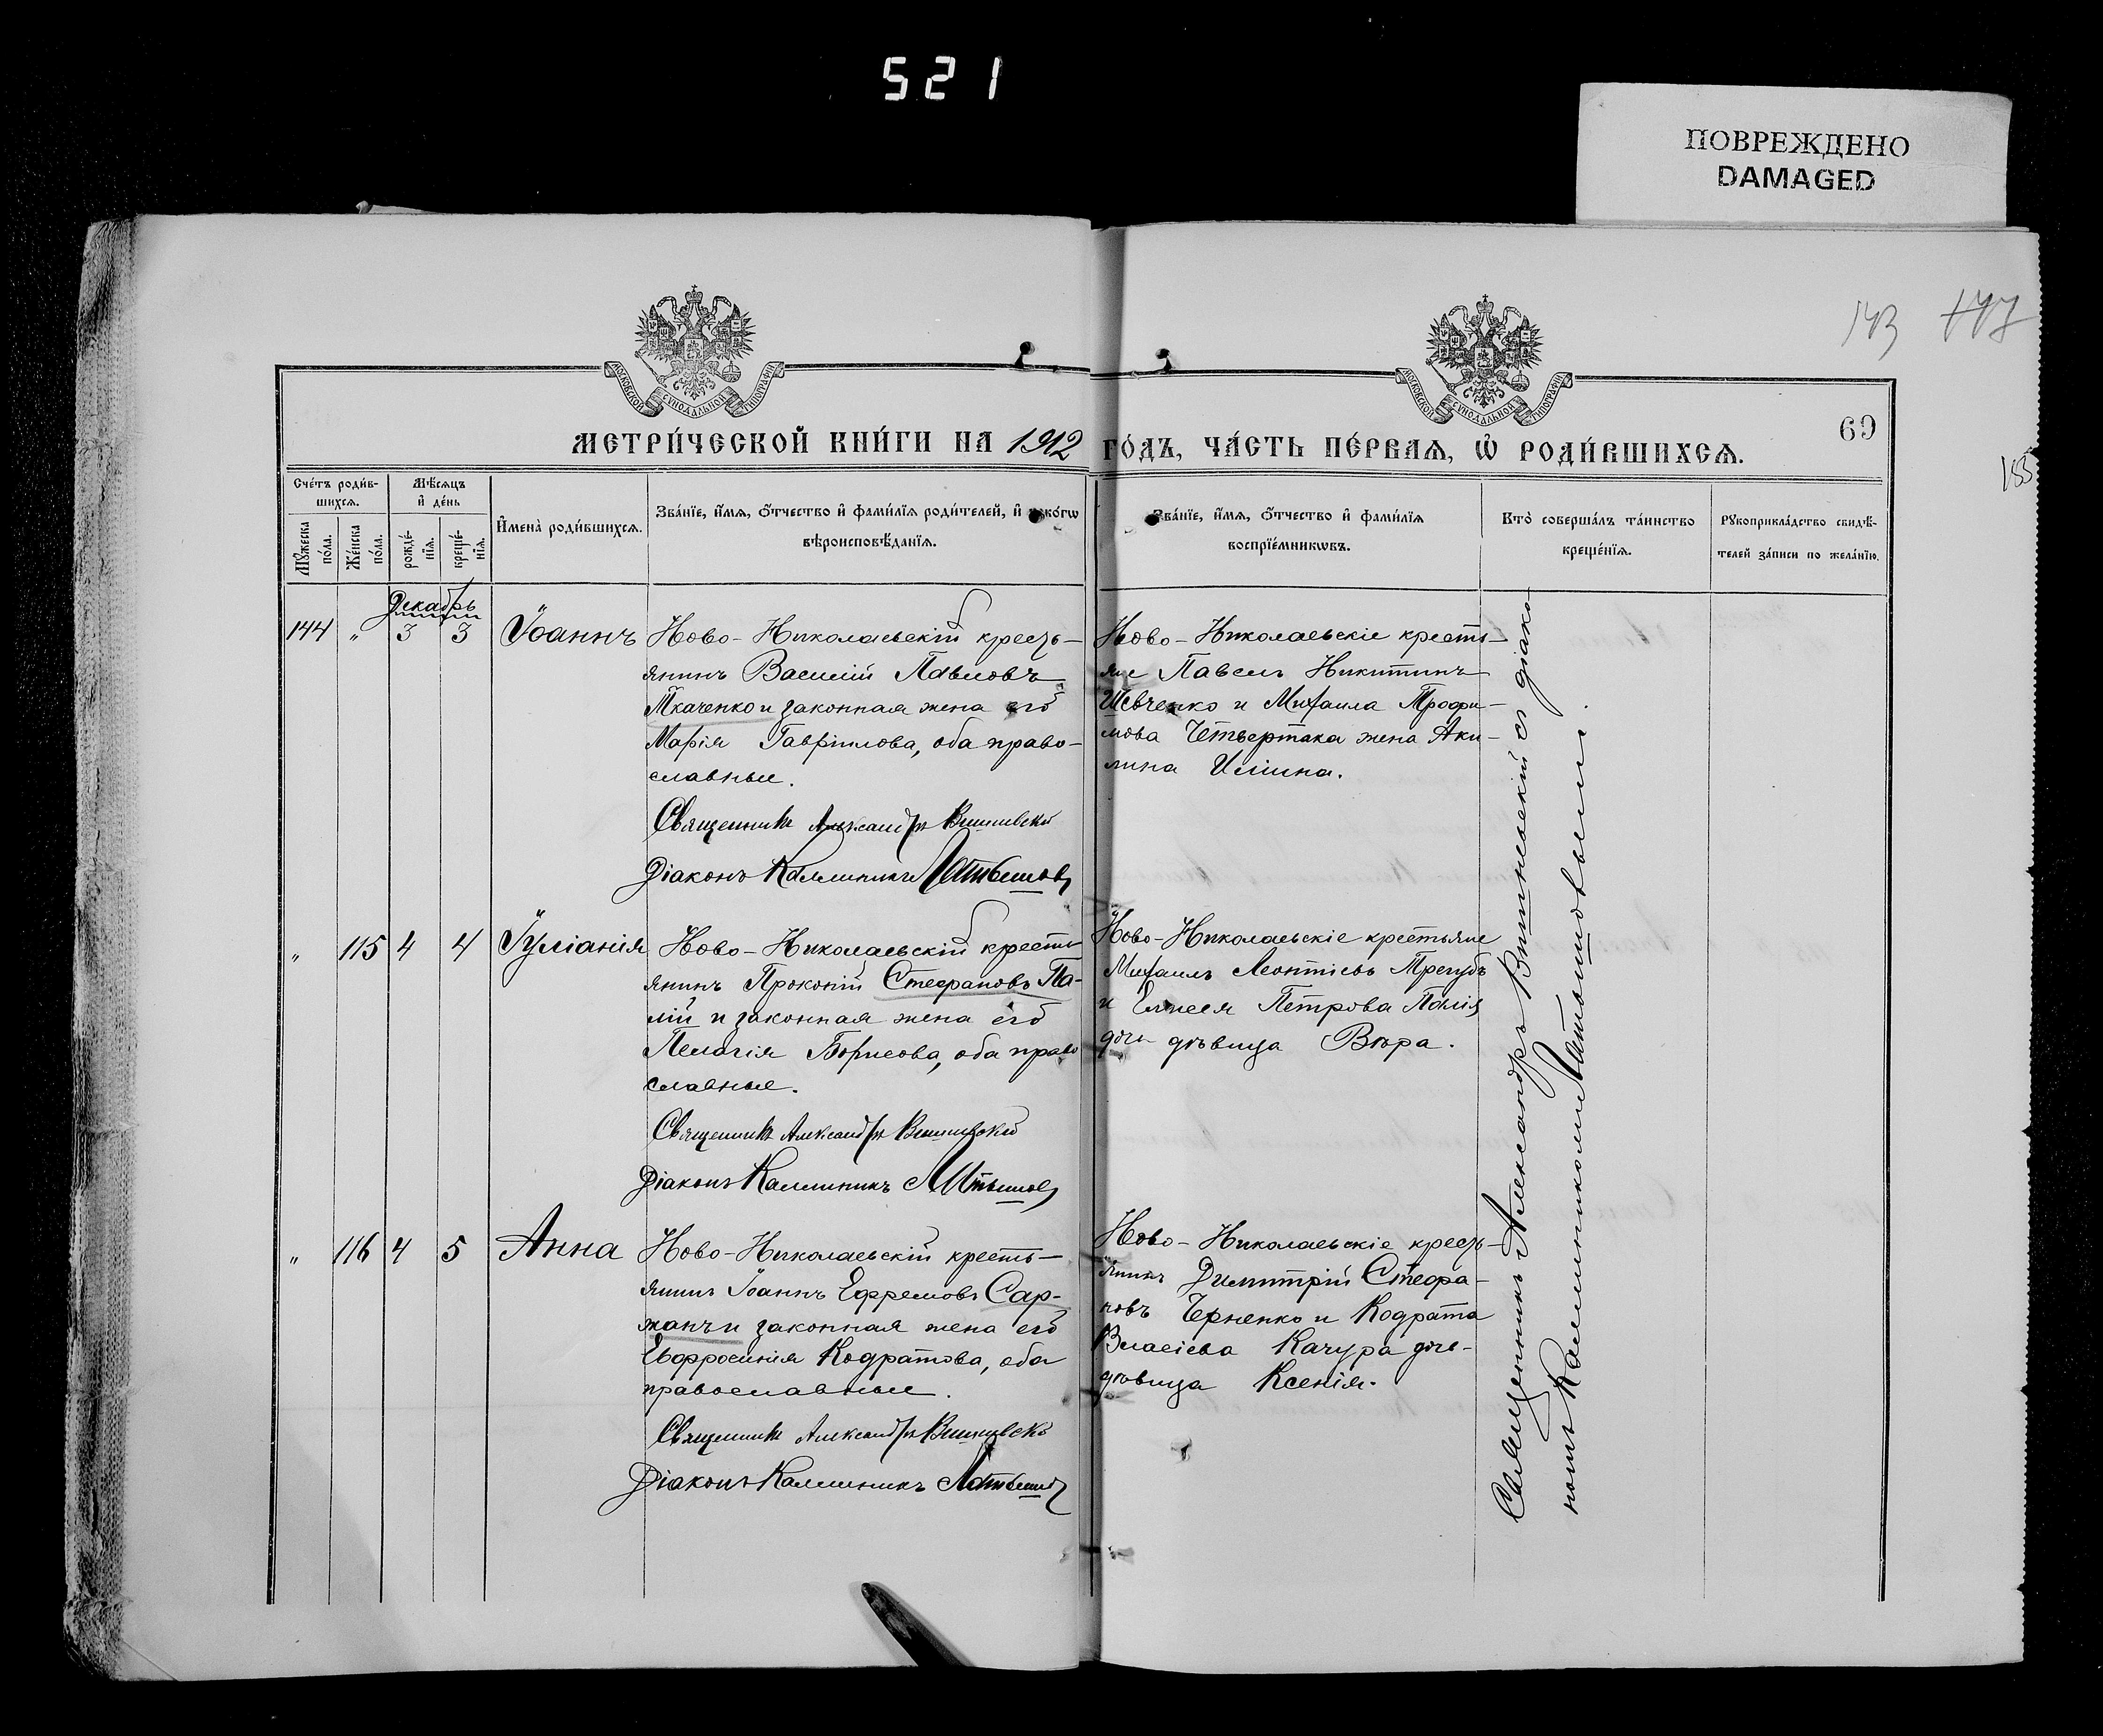 521
ПОВРЕЖДЕНО
DAMAGED
143 177
69
185
МОСКОВСКОЙ СУНОДАЛЬНОЙ ТИПОГРАФІИ
МОСКОВСКОЙ СУНОДАЛЬНОЙ ТИПОГРАФІИ
МЕТРИ́ЧЕСКОЙ КНИ́ГИ НА 1912 ГО́ДЪ, ЧА́СТЬ ПЕ́РВАѦ, Ѡ҆ РОДИ́ВШИХСѦ.
Сче́тъ роди́в-
шихсѧ.
Мꙋ́жеска
по́ла.
Же́нска
по́ла.
Мѣ́сѧцъ
и҆ де́нь
рожде́-
нїѧ.
креще́-
нїѧ.
И҆мена̀ роди́вшихсѧ.
Зва́нїе, и҆́мѧ, ѻ҆́тчество и҆ фами́лїѧ роди́телей, и҆ како́гѡ
вѣроисповѣ́данїѧ.
Зва́нїе, и҆́мѧ, ѻ҆́тчество и҆ фами́лїѧ
воспрїе́мникѡвъ.
Кто̀ соверша́лъ та́инство
креще́нїѧ.
Рꙋкоприкла́дство свидѣ́-
телей за́писи по жела́нїю.
Декабрь
144 " 3 3 Іоаннъ
Ново-Николаевскій кресть-
янинъ Василій Павловъ
Ткаченко и законная жена его
Марія Гавріилова, оба право-
славные.
Священникъ Александръ Вишневскій
Діаконъ Каллиникъ Латышовъ
Ново-Николаевскіе кресть-
яне Павелъ Никитинъ
Шевченко и Михаила Трофи-
мова Четвертака жена Аки-
лина Иліина.
" 115 4 4 Іуліанія
Ново-Николаевскій кресть-
янинъ Прокопій Стефановъ Па-
лій и законная жена его
Пелагія Борисова, оба право
славные.
Священникъ Александръ Вишневскій
Діаконъ Каллиникъ Латышовъ
Ново-Николаевскіе крестьяне
Михаилъ Леонтіевъ Трегубъ
и Елисея Петрова Палія
дочь дѣвица Вѣра.
" 116 4 5 Анна
Ново-Николаевскій кресть-
янинъ Іоаннъ Ефремовъ Сар-
жанъ и законная жена его
Евфросинія Кодратова, оба
православные.
Священникъ Александръ Вишневскій
Діаконъ Каллиникъ Латышовъ
Ново-Николаевскіе кресть-
янинъ Димитрій Стефа-
новъ Черненко и Кодрата
Власіева Качура дочь-
дѣвица Ксенія.
Священникъ Александръ Вишневскій съ діако-
номъ Каллиникомъ Латышовымъ.